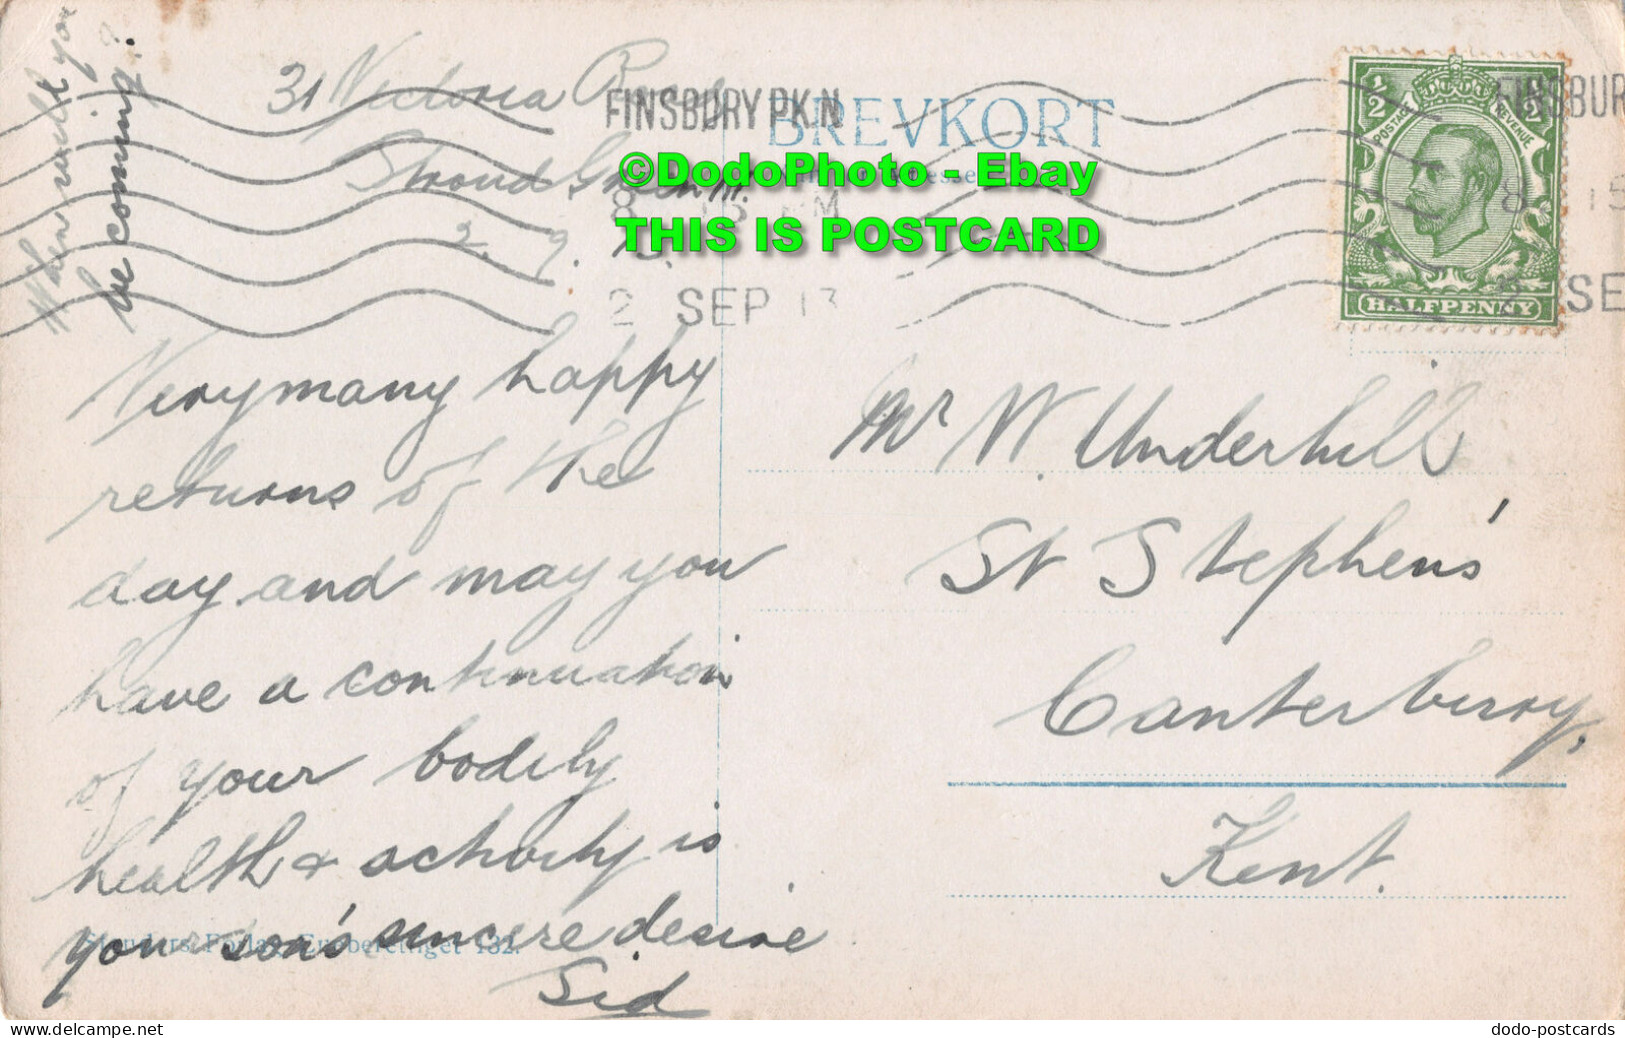 When will you
be coming?
31 Victoria
Stroud Green
2. 9.
FINSBURY PK.N
8 15 PM
2 SEP 13
BREVKORT
©DodoPhoto - Ebay
THIS IS POSTCARD
1/2 1/2
POSTAGE REVENUE
HALFPENNY
FINSBUR
8 15
2 SE
Very many happy
returns of the
day and may you
have a continuation
of your bodily
health & activity is
your son's sincere desire
Sid
Eneberettiget 132.
Mr W. Underhill
St Stephens'
Canterbury,
Kent.
delcampe.net
dodo-postcards